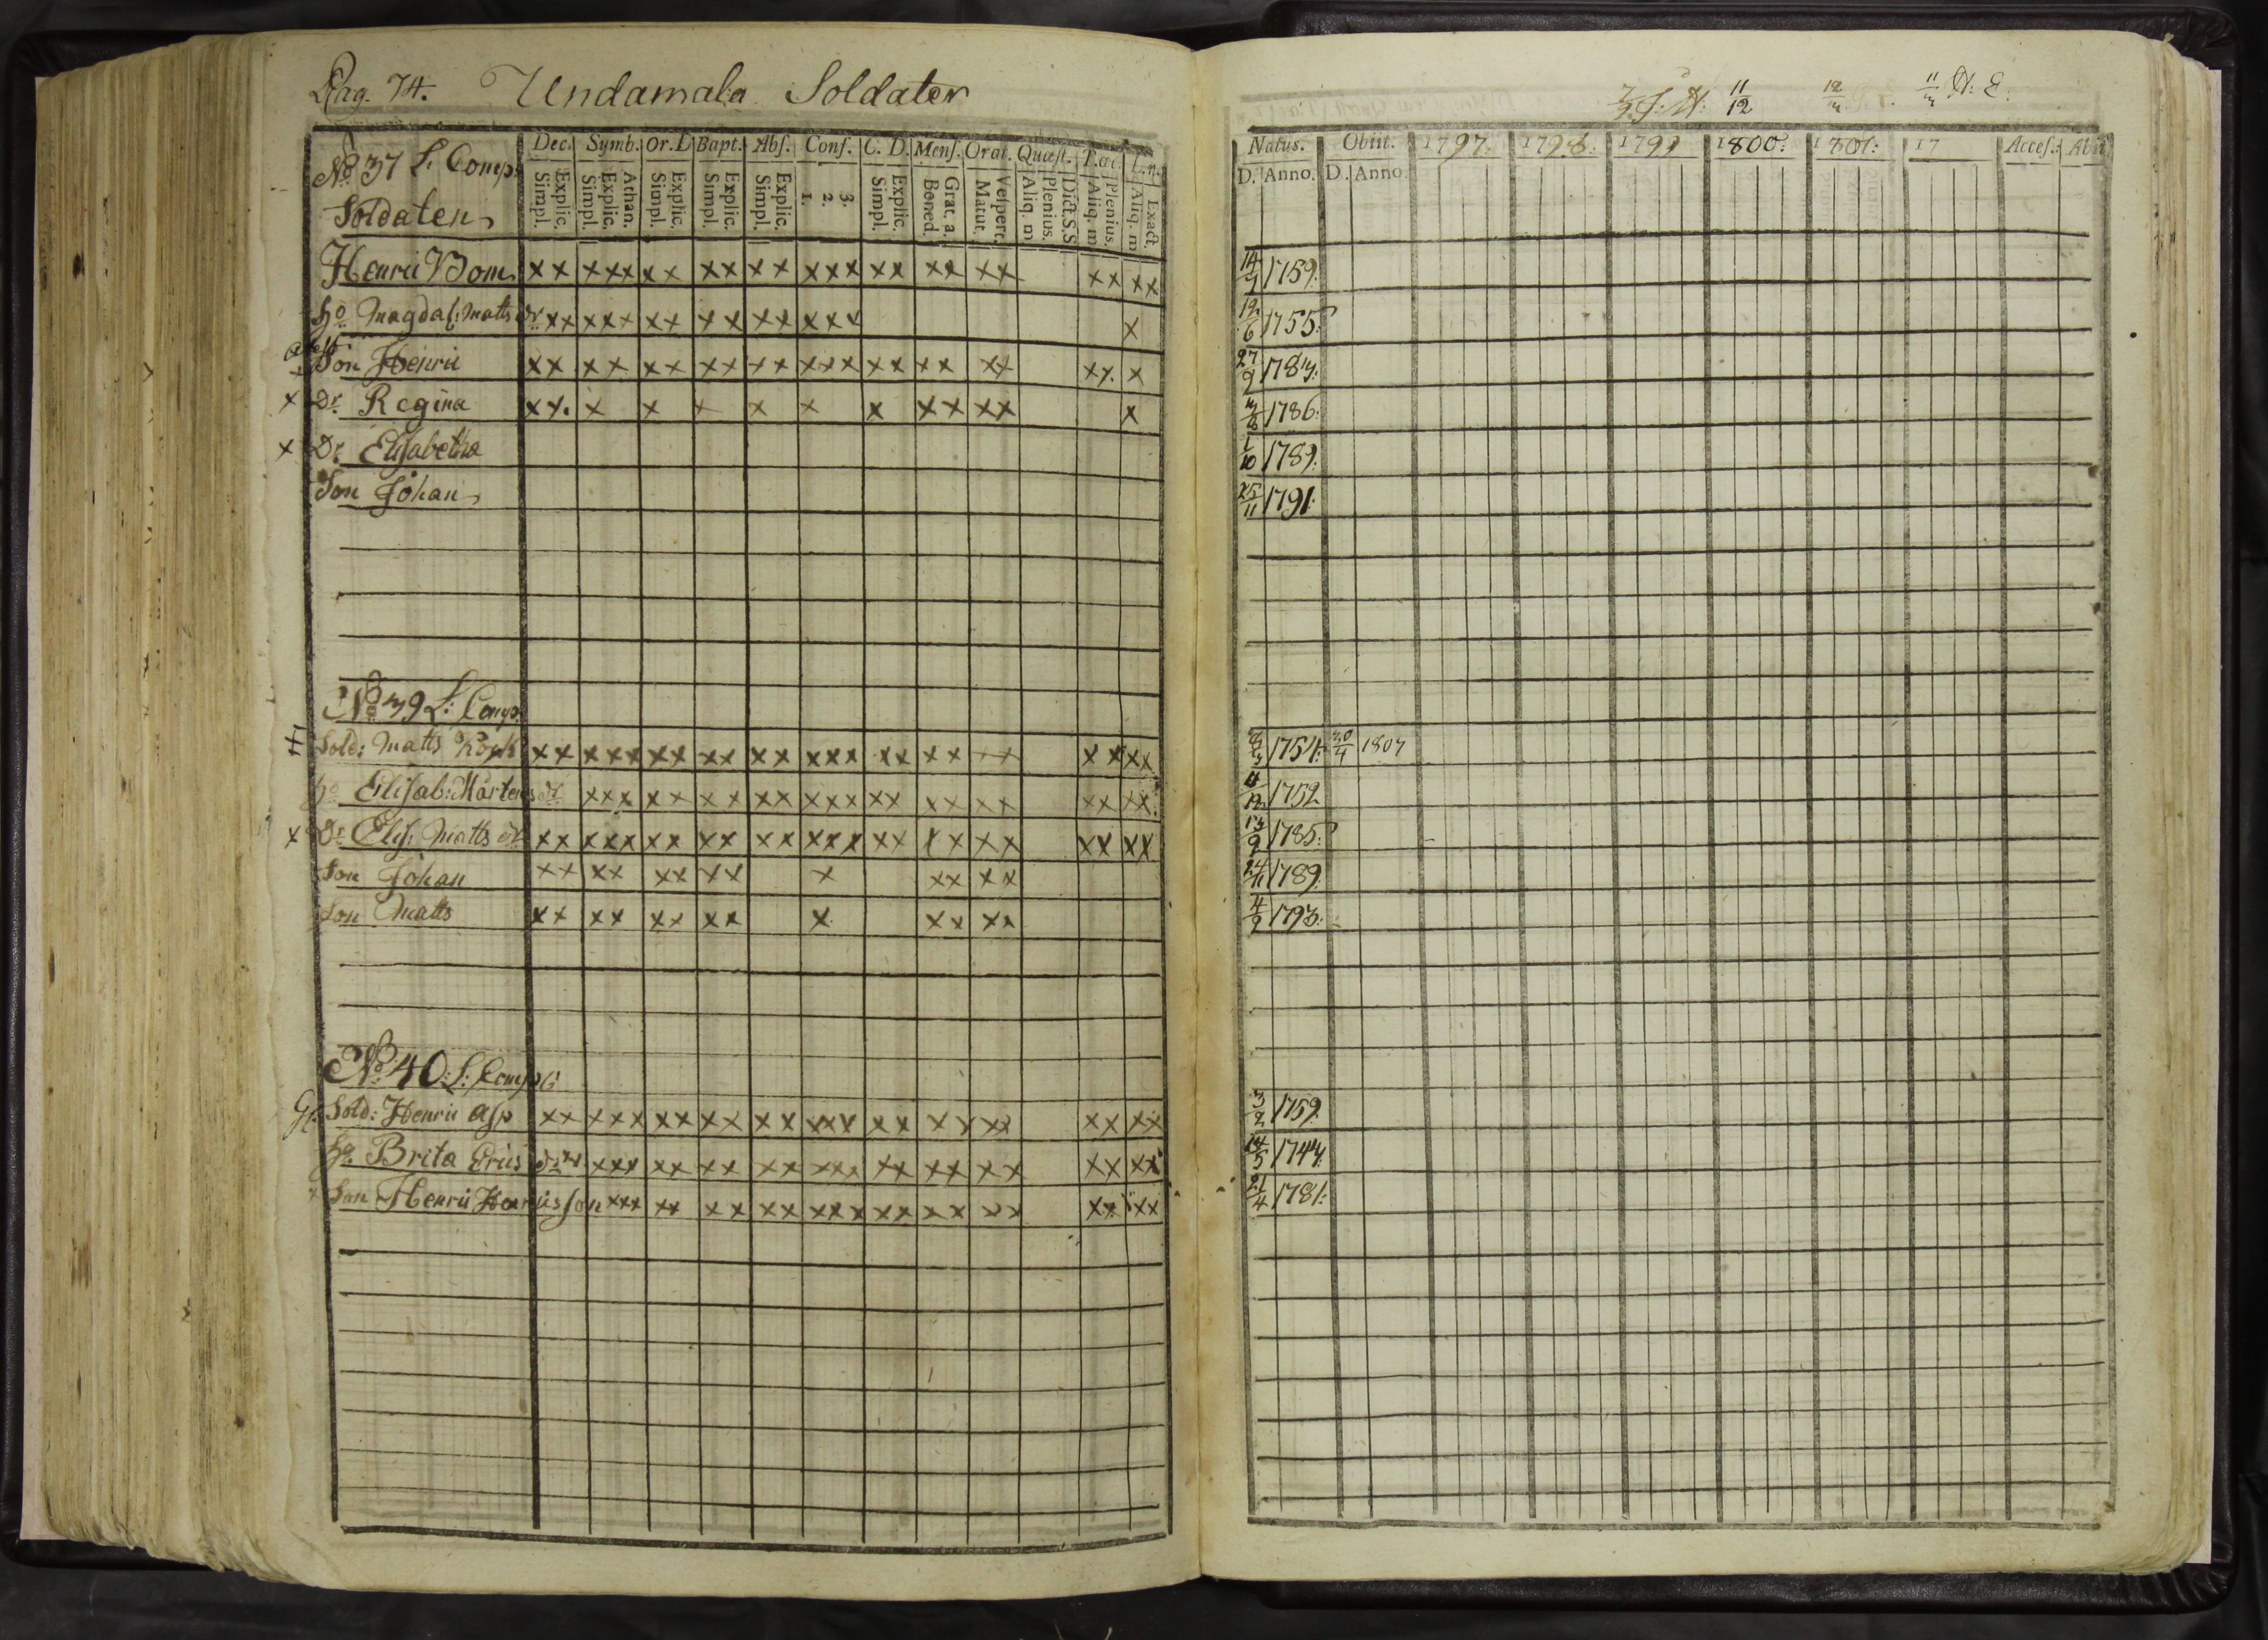 Pag. 74. Undamala Soldater
Dec. Symb. Or. D Bapt. Abſ. Conf. C. D. Menſ. Orat. Quæſt. T. æc. L. n.
Explic. Simpl. Athan. Explic. Simpl. Explic. Simpl. Explic. Simpl. Explic. Simpl. 3. 2. 1. Explic. Simpl. Grat. a. Bened. Veſpert. Matut. Dict. S. S Plenius. Aliq. m Plenius. Aliq. m Exact. Aliq. m
No 37 L. Comp:
Soldaten
Henric Bom xx xxx xx xx xx xxx xx xx xx xx xx
Ho Magdal: Matts dr xx xxx xx xx xx xxx x
Son Henric xx xx xx xx xx xxx xx xx xx xx. x
x Dr Regina xx. x x x x x x xx xx x
x Dr. Elisabetha
Son Johan
No 39 L: Comp:
Sold: Matts Rock xx xxx xx xx xx xxx xx xx xx xx xx
ho Elisab: Mårtens dr xxx xx xx xx xxx xx xx xx xx xx
x Dr Elis: Matts dr xx xxx xx xx xx xxx xx xx xx xx xx
Son Johan xx xx xx xx x xx xx
Son Matts xx xx xx xx x xx xx
No 40: L: Comp:
Sold: Henric Asp xx xxx xx xx xx xxx xx xx xx xx xx
ho. Brita Erics dr xxx xx xx xx xxx xx xx xx xx xx
Son Henric Henricsson xxx xx xx xx xxx xx xx xx xx xx
11/12 12/3 11/3 N: E:
Natus. Obiit. 1797. 1798. 1799 1800: 1801: 17 Acceſ.: Abit
D. Anno. D. Anno.
14/7 1759.
12/6 1755.
27/9 1783.
1786.
1/10 1789.
25/11 1791.
1754. 30/4 1807
1752
13/9 1785:
24/11 1789.
4/9 1793.
3/2 1759.
14/5 1743.
21/4 1781.